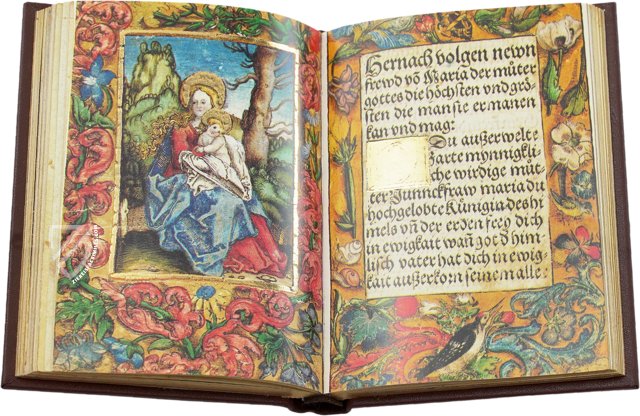 Hernach volgen newn
frewd vō Maria der můter
gottes die höchsten vnd grö
sten die man sie ermanen
kan vnd mag:
Du außerwelte
Zarte mynnigkli
che wirdige můt
ter Junnckfraw maria du
hochgelobte Künigia des hi
mels vn̄ der erden frey dich
in ewigkait wan̄ got d him
lisch vater hat dich in ewig
kait außerkorn seine malle: